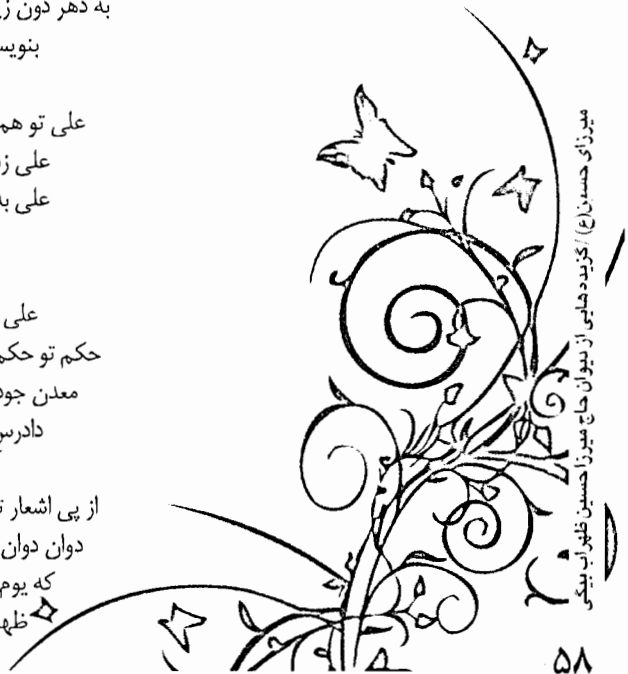 به دهر دون
بنویس
علی تو هم
علی
علی به
علی
حکم تو حکم
معدن جود
دادرس
از پی اشعار
دوان دوان
که یوم
میرزای حسین(ع) / گزیده‌هایی از دیوان حاج میرزا حسین ظهراب بیگی
۵۸